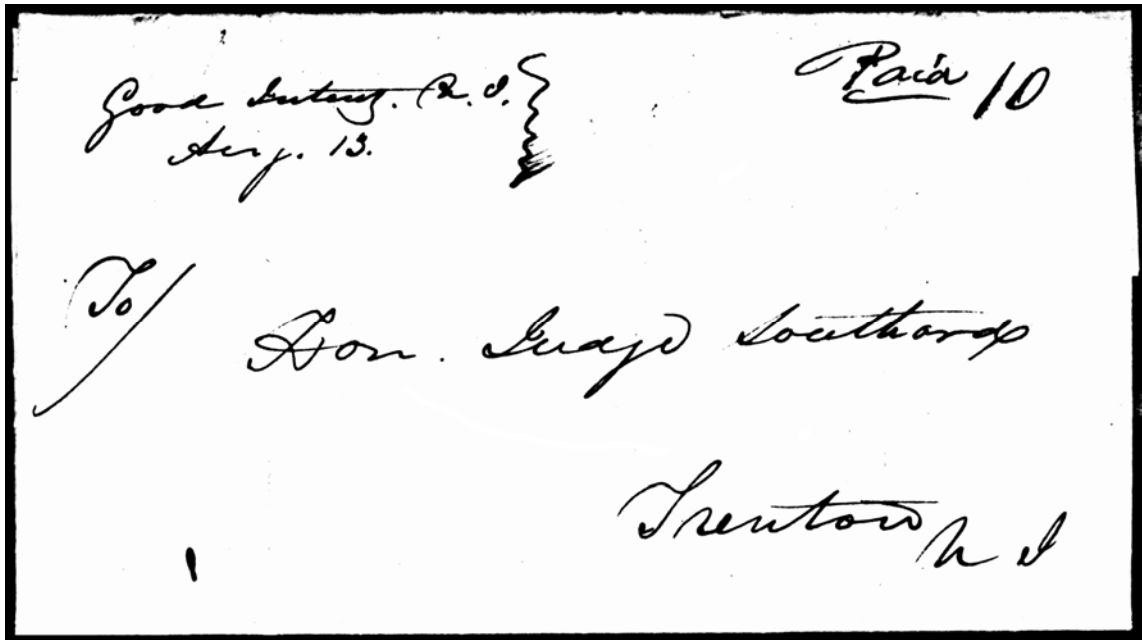 Good Intent. N. J.
Aug. 13.
Paid 10
To/
Hon. Judge Southard
Trenton
N J